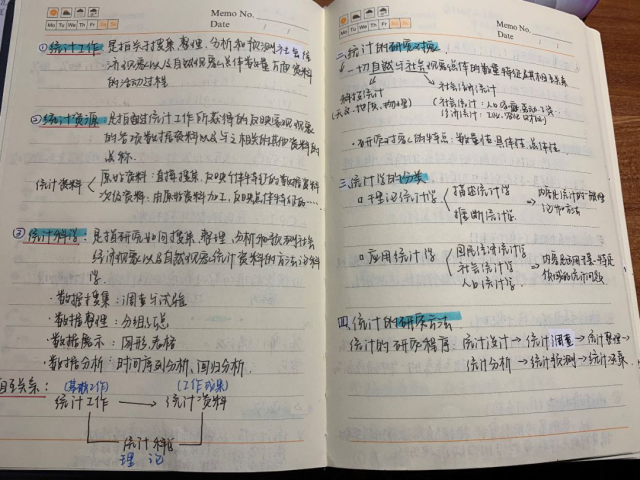 Memo No.
Mo Tu We Th Fr Sa Su
Date / /
①统计工作:是指关于搜集、整理、分析和预测社会经
济现象以及自然现象总体数量方面资料
的活动过程
②统计资源:是指通过统计工作所获得的反映客观现象
的各项数据资料以及与之相关的其他资料的
总称.
统计资料
原始资料:直接搜集、反映个体特征的数据资料
次级资料:由原始资料加工,反映总体特征的……
③统计科学:是指研究如何搜集、整理、分析和预测社会
经济现象以及自然现象统计资料的方法论科
学.
·数据搜集:调查与试验
·数据整理:分组汇总
·数据展示:图形、表格
·数据分析:时间序列分析、回归分析.
相互关系:
(基础工作) (工作成果)
统计工作 → 统计资料
统计科学
理论
Memo No.
Mo Tu We Th Fr Sa Su
Date / /
二、统计的研究对象
一切自然与社会现象总体的数量特征及其相互关系
科技统计
社会经济统计
(天文、物理)
(社会统计:人口
经济统计:工业、
·研究对象的特点:数量性、具体性、总体性.
三、统计学的分类
□理论统计学
描述统计学
推断统计学
→内容是统计的一般理
论和方法
□应用统计学
国民经济统计学
社会统计学
人口统计学.
→内容是运用于某一特定
领域的统计问题
四、统计的研究方法
统计的研究程序 统计设计→统计调查→统计整理→
统计分析→统计预测→统计决策.